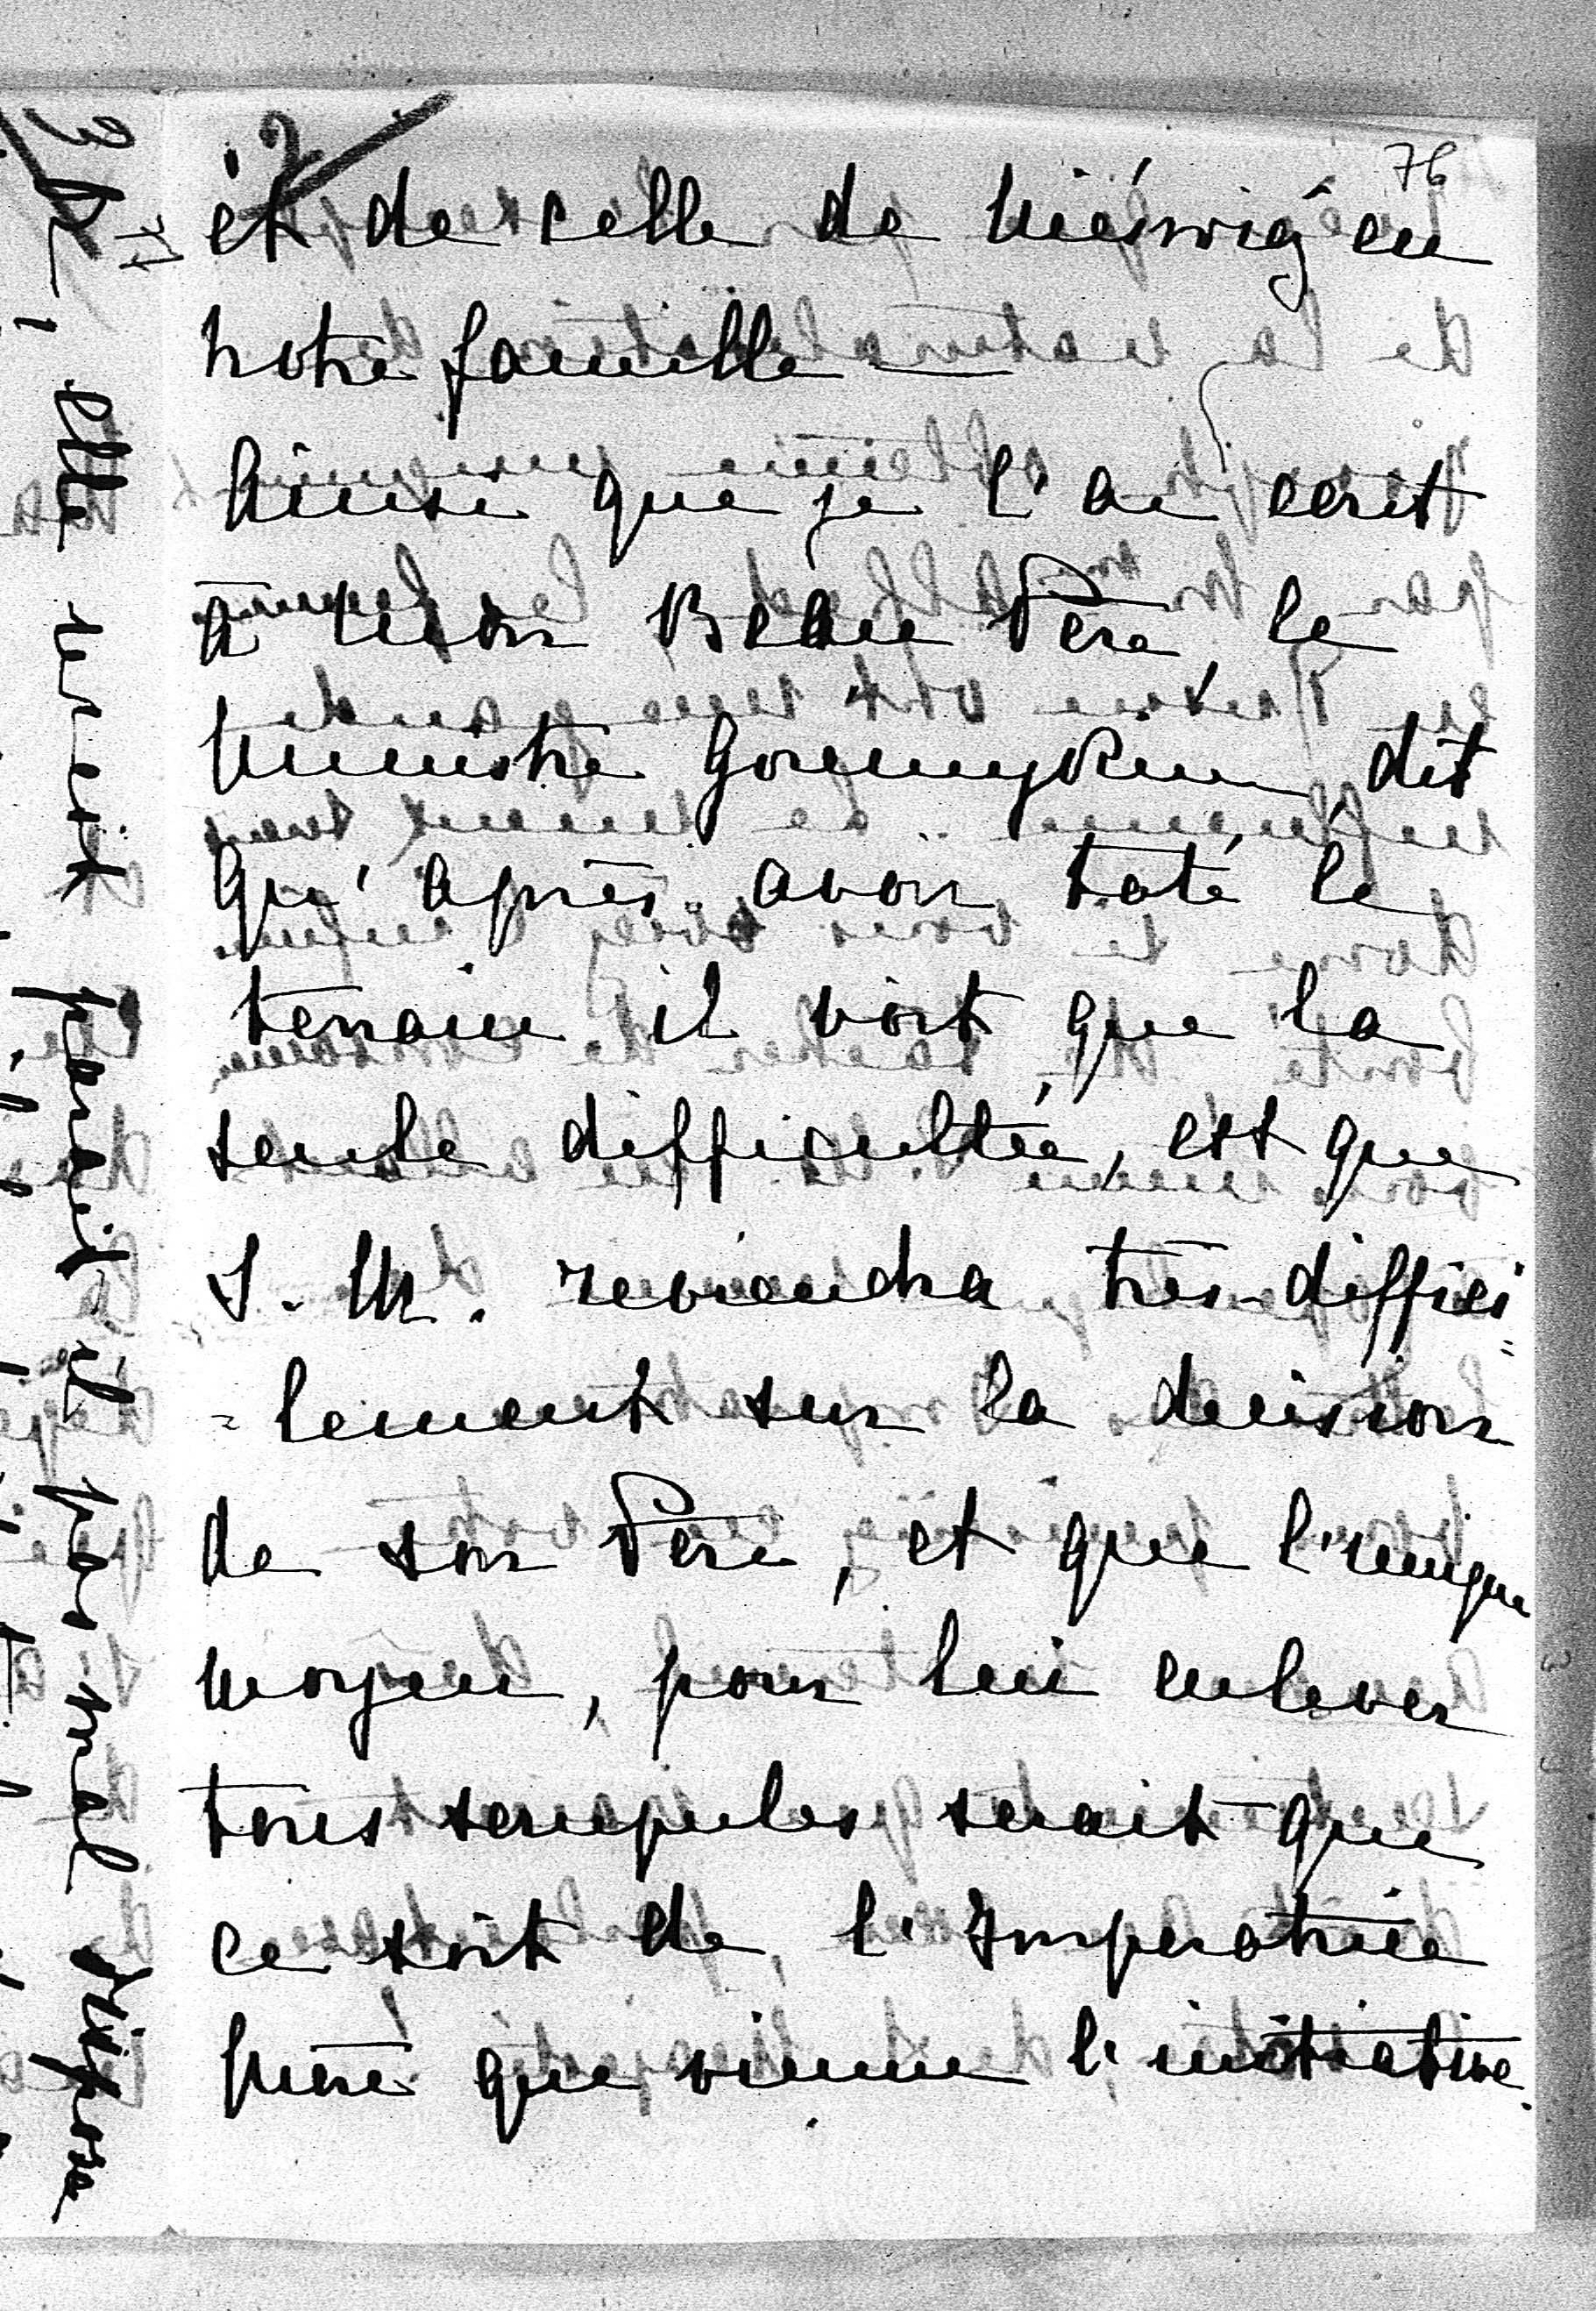 76
2
et de celle de Nieświeź en
notre famille —
Ainsi que je l'ai ecrit
à mon Beau Père, le
Ministre Goremykin, dit
qu'après avoir taté le
terrain il voit, que la
seule difficultée, est que
S. M. reviendra très-diffici
=lement sur la decision
de son Père, et que l'unique
moyen, pour lui enlever
tous scrupules serait que
ce soit de, l'Imperatrice
Mère que vienne l'initiative.
elle
parait-il pas mal disposé